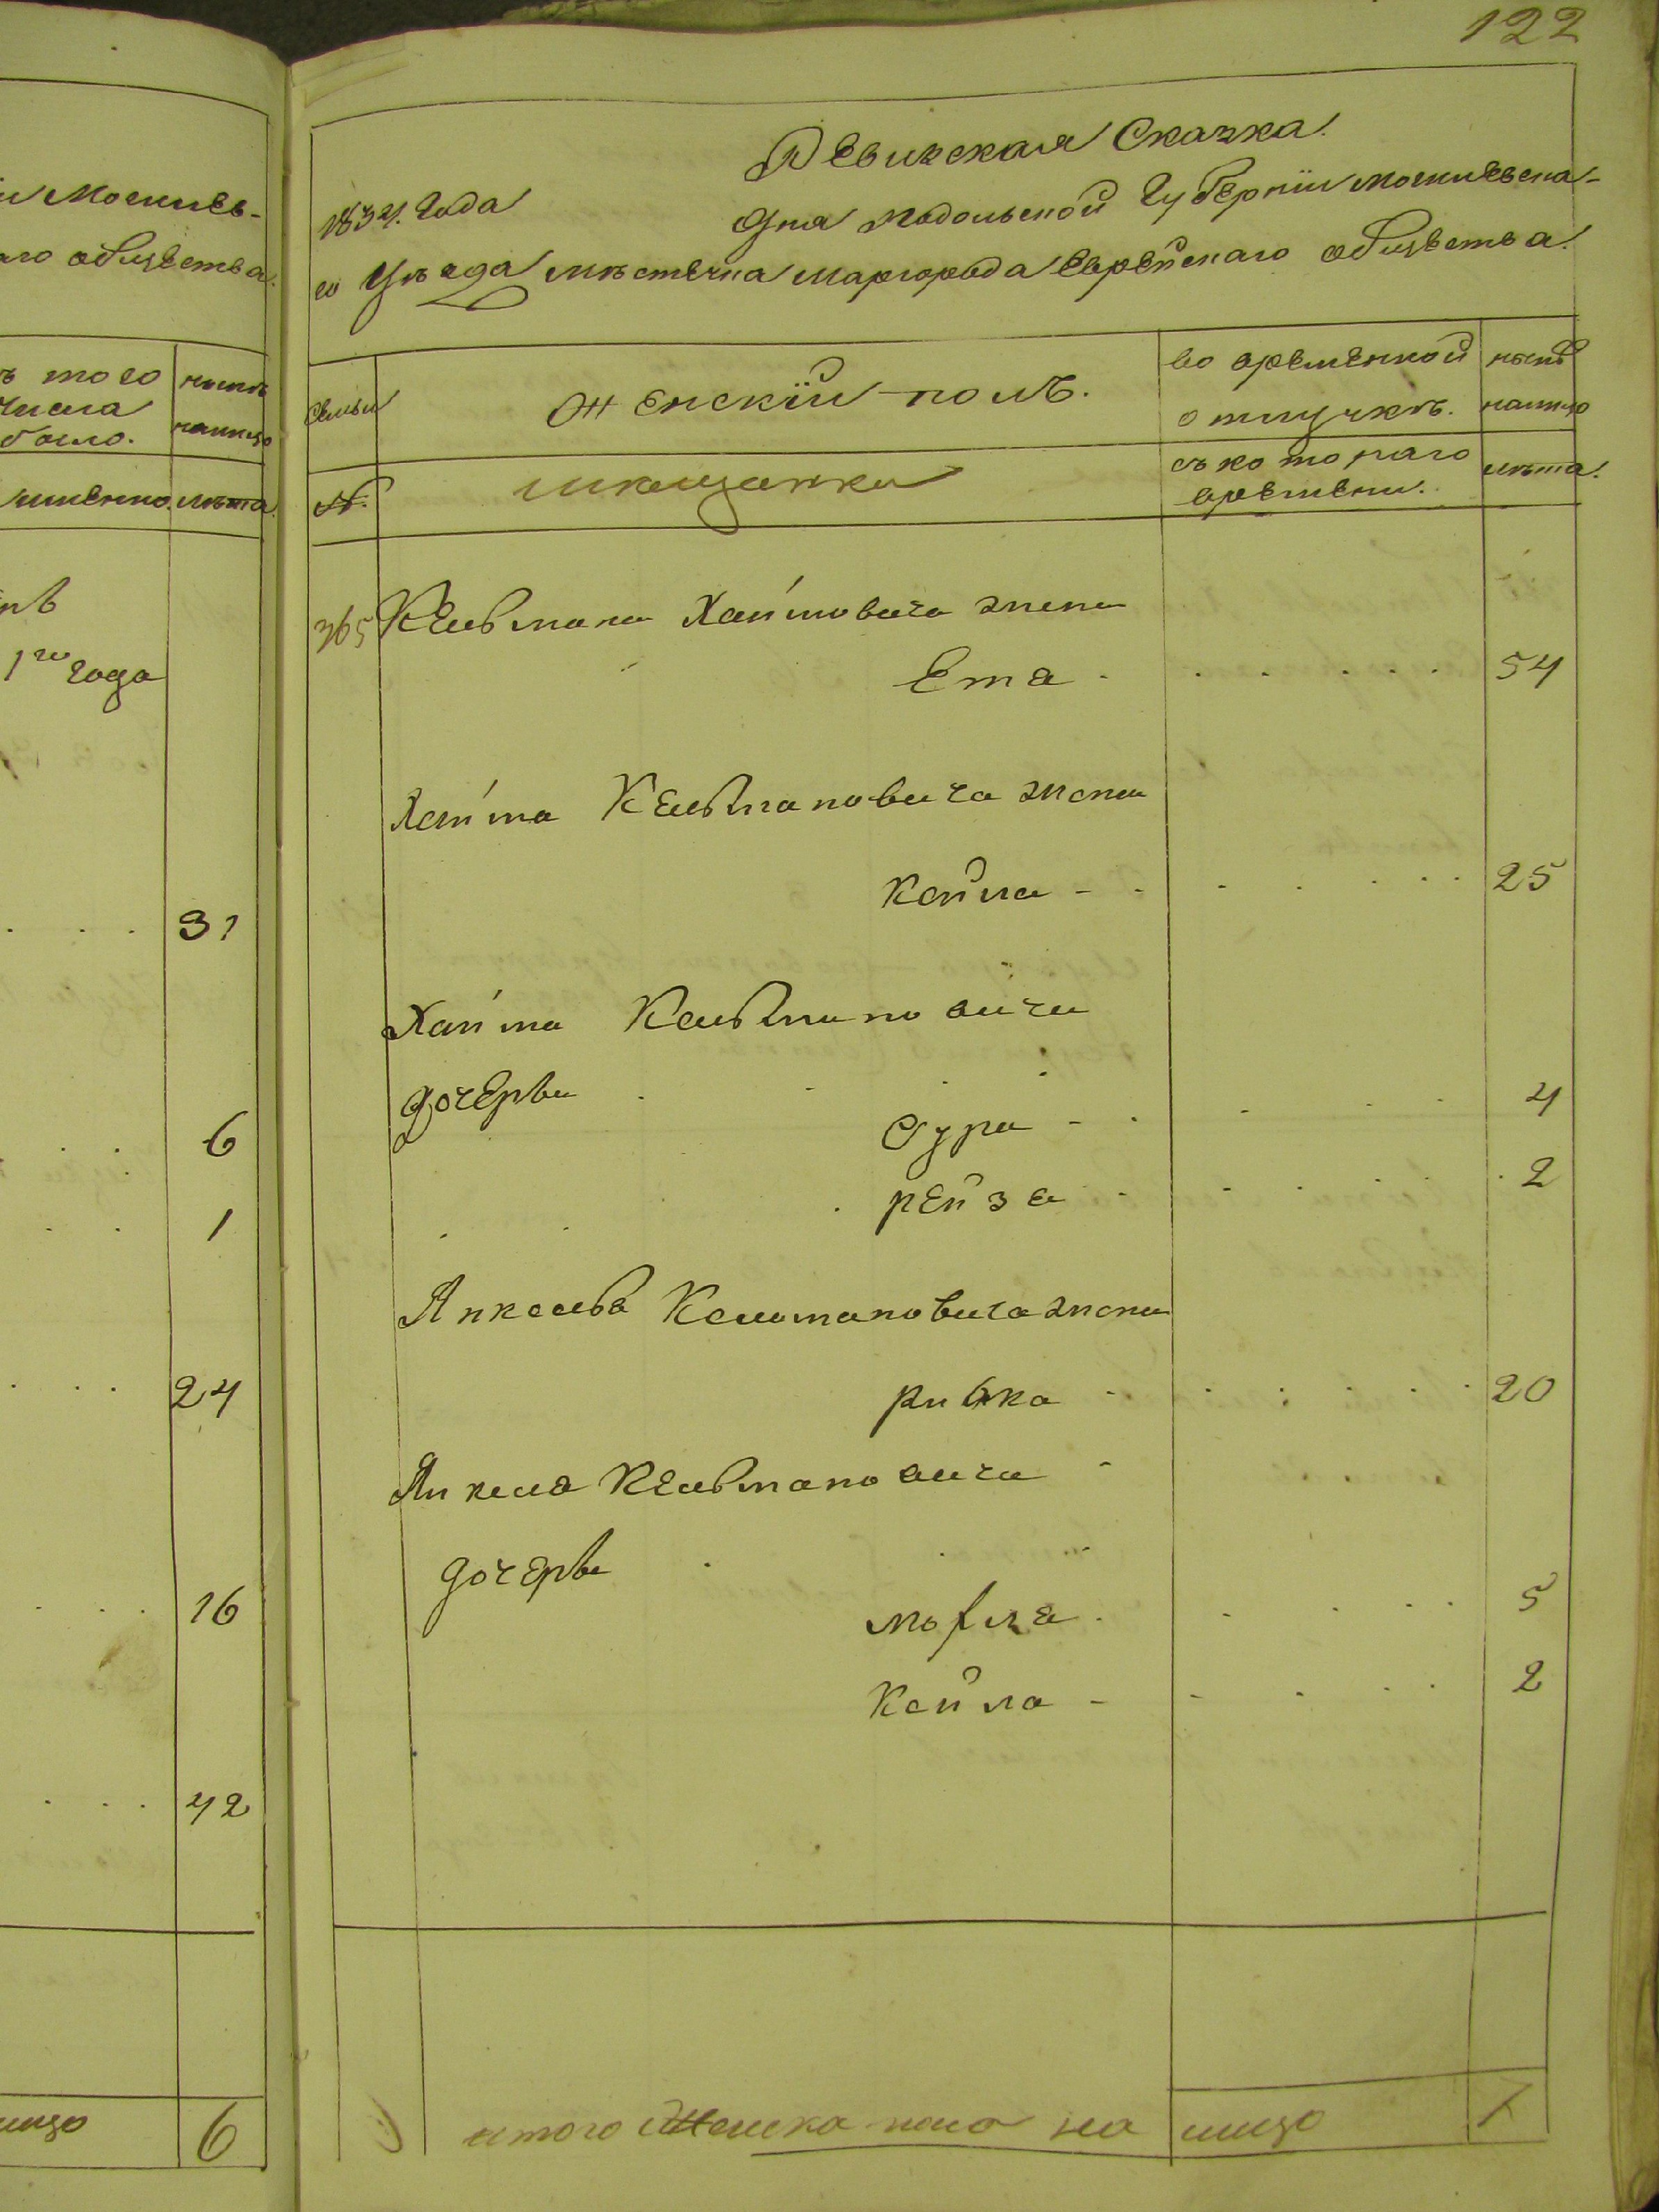 122
и Могилев-
аго общества.
ъ того
числа
было.
нынѣ
налицо
именно.
лѣта.
1го года
31
6
1
24
16
42
лицо
6
Ревизская Сказка.
1834. Года Дня Подольской Губернїи Могилевска-
го Уѣзда мѣстечка Маргорода Еврейскаго общества.
Семьи
женскїй полъ.
во временной
отлучкѣ.
нынѣ
налицо
№.
мещанки
съ котораго
времени.
лѣта.
365 Кельмана Хаймовича жена
Ета - 54
Хайма Кельмановича жена
Кейла - - 25
Хайма Кельмановича
дочерьи
Сура - - 4
рейза - 2
Янкеля Кельмановича жена
ривка - 20
Янкеля Кельмановича -
дочерьи
5
Кейла - 2
итого женска пола на лицо 7